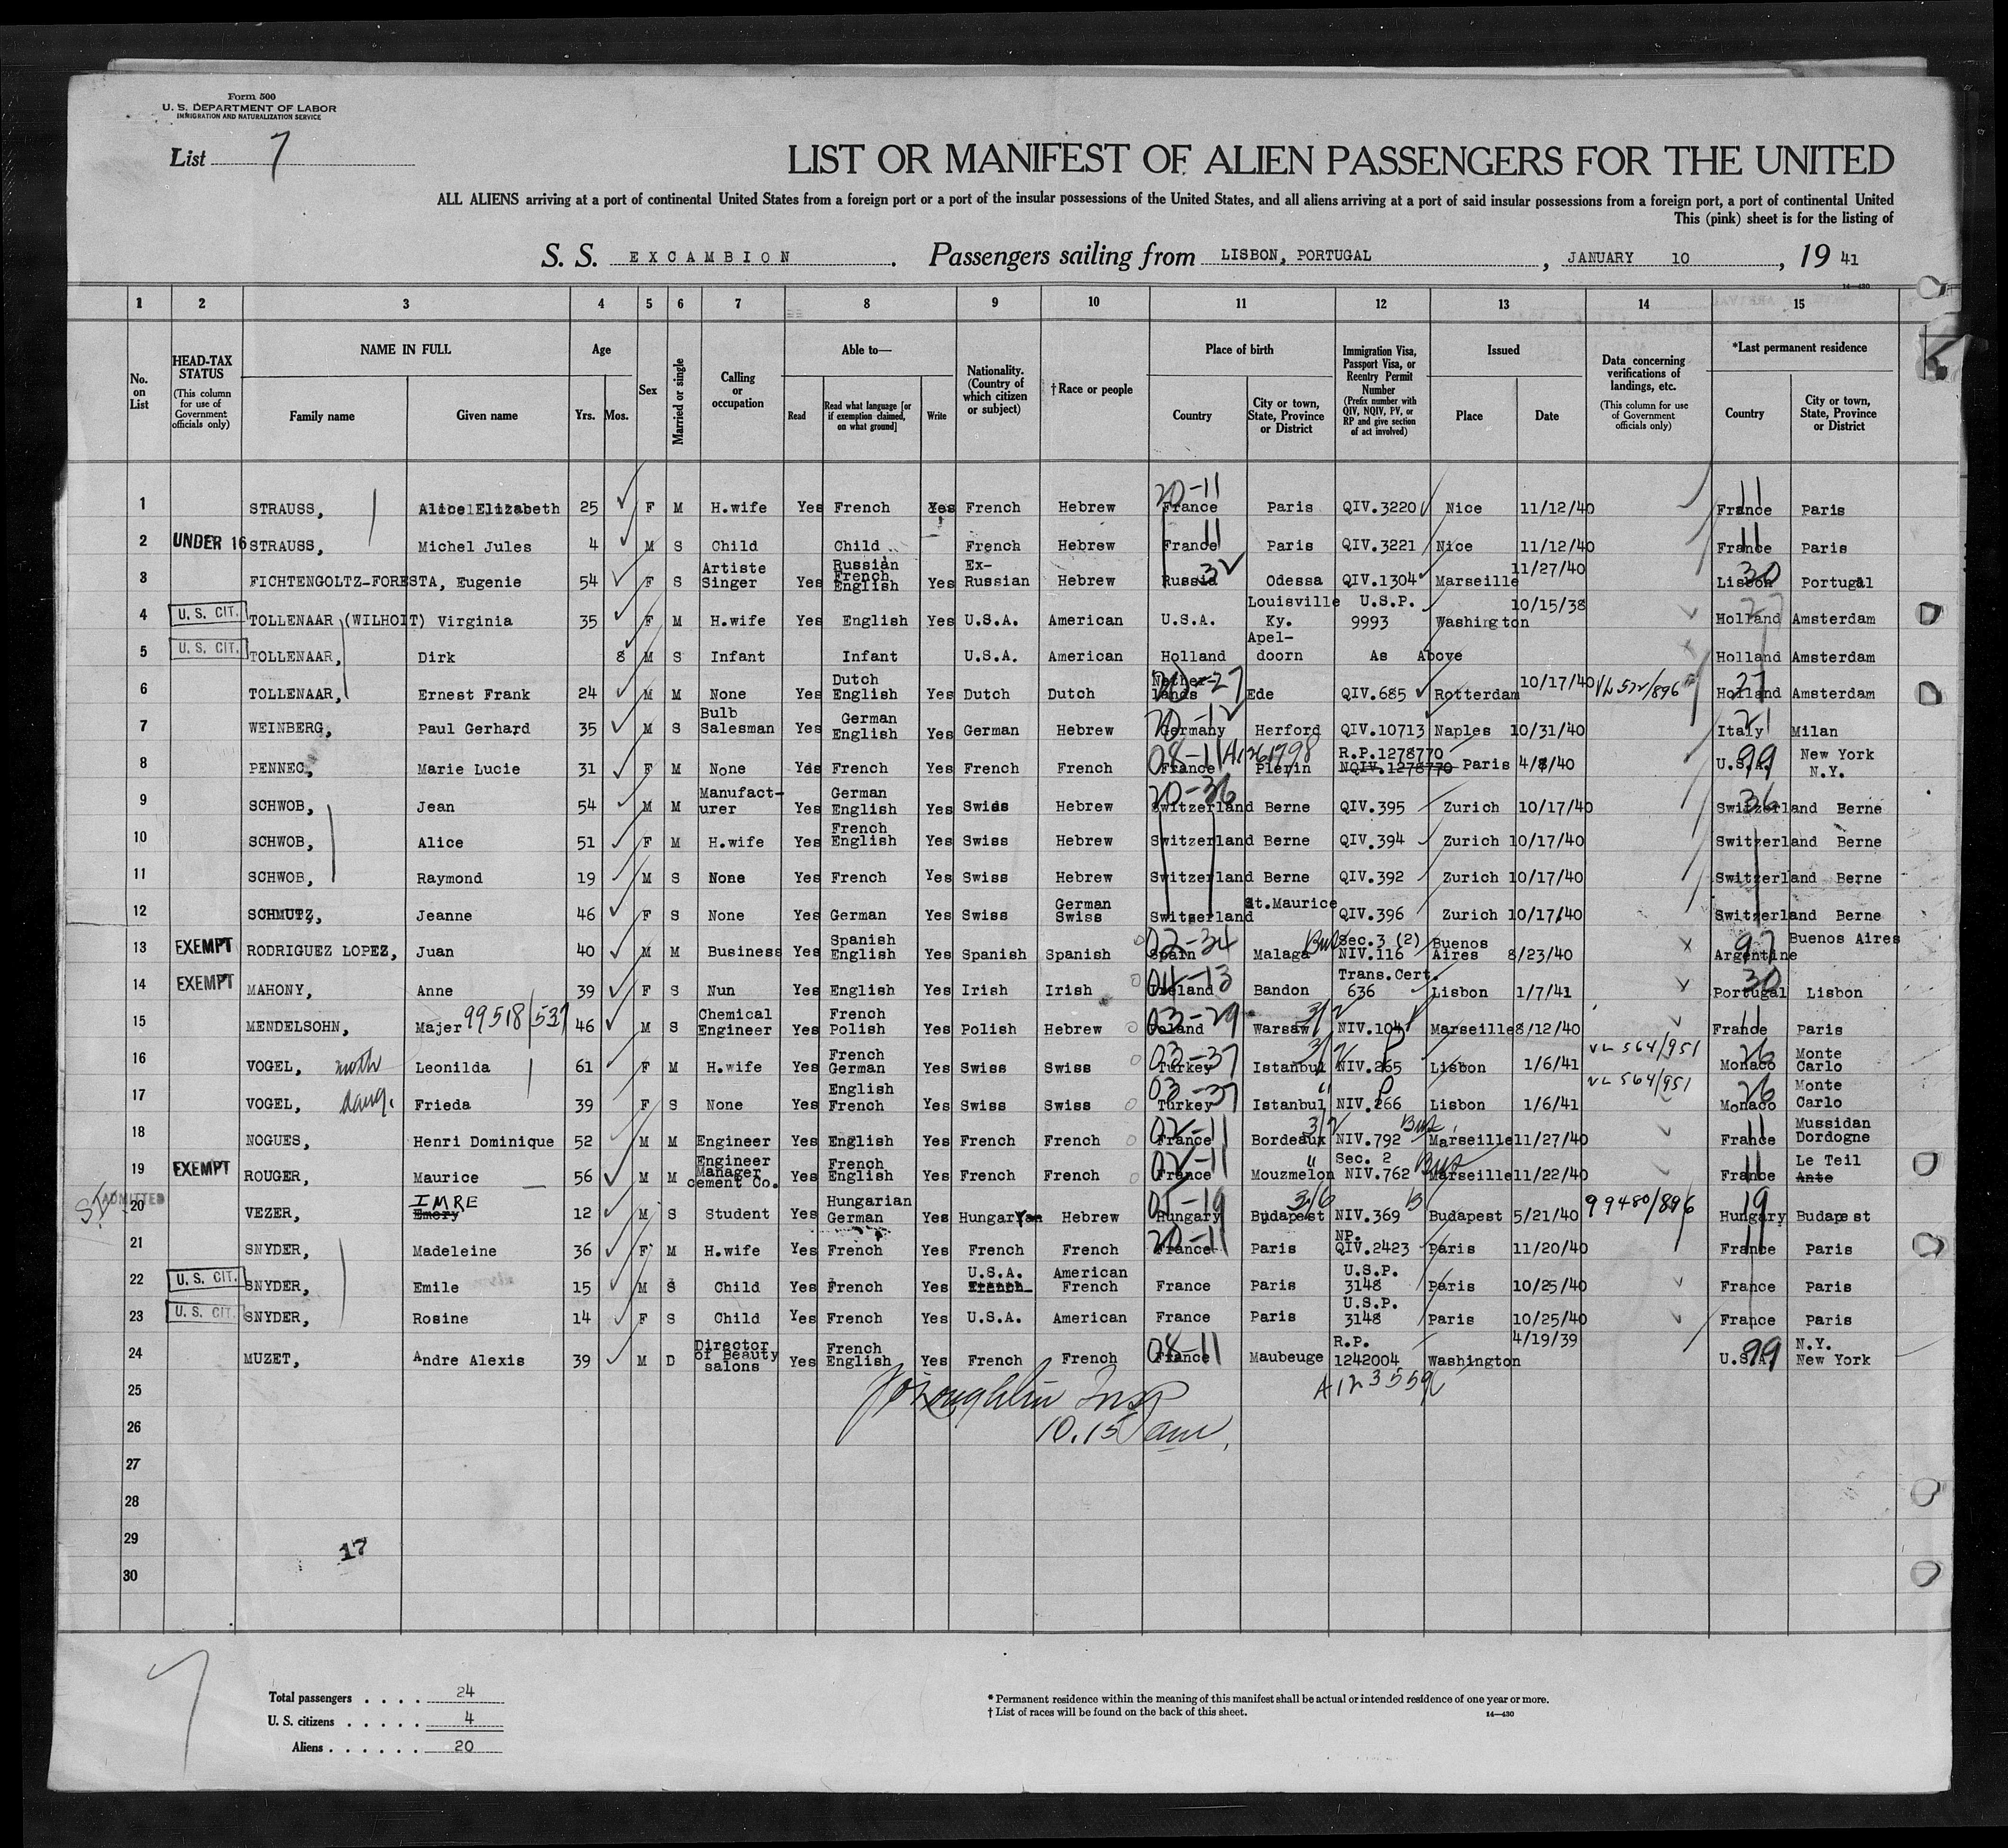 Form 500
U. S. DEPARTMENT OF LABOR
IMMIGRATION AND NATURALIZATION SERVICE
List 7
LIST OR MANIFEST OF ALIEN PASSENGERS FOR THE UNITED
ALL ALIENS arriving at a port of continental United States from a foreign port or a port of the insular possessions of the United States, and all aliens arriving at a port of said insular possessions from a foreign port, a port of continental United
This (pink) sheet is for the listing of
S. S. EXCAMBION. Passengers sailing from LISBON, PORTUGAL, JANUARY 10, 19 41
14—430
1 2 3 4 5 6 7 8 9 10 11 12 13 14 15
No. on List
HEAD-TAX STATUS (This column for use of Government officials only)
NAME IN FULL Family name Given name
Age Yrs. Mos.
Sex
Married or single
Calling or occupation
Able to— Read Read what language [or if exemption claimed, on what ground] Write
Nationality. (Country of which citizen or subject)
†Race or people
Place of birth Country City or town, State, Province or District
Immigration Visa, Passport Visa, or Reentry Permit Number (Prefix number with QIV, NQIV, PV, or RP and give section of act involved)
Issued Place Date
Data concerning verifications of landings, etc. (This column for use of Government officials only)
*Last permanent residence Country City or town, State, Province or District
1 STRAUSS, Alice Elizabeth 25 F M H.wife Yes French Yes French Hebrew 20-11 France Paris QIV.3220 Nice 11/12/40 11 France Paris
2 UNDER 16 STRAUSS, Michel Jules 4 M S Child Child French Hebrew France 11 Paris QIV.3221 Nice 11/12/40 11 France Paris
3 FICHTENGOLTZ-FORESTA, Eugenie 54 F S Artiste Singer Yes Russian French English Yes Ex-Russian Hebrew Russia 32 Odessa QIV.1304 Marseille 11/27/40 30 Lisbon Portugal
4 U. S. CIT. TOLLENAAR (WILHOIT) Virginia 35 F M H.wife Yes English Yes U.S.A. American U.S.A. Louisville Ky. U.S.P. 9993 Washington 10/15/38 27 Holland Amsterdam
5 U. S. CIT. TOLLENAAR, Dirk 8 M S Infant Infant U.S.A. American Holland Apeldoorn As Above Holland Amsterdam
6 TOLLENAAR, Ernest Frank 24 M M None Yes Dutch English Yes Dutch Dutch Netherlands 20-27 Ede QIV.685 Rotterdam 10/17/40 VL 572/896 27 Holland Amsterdam
7 WEINBERG, Paul Gerhard 35 M S Bulb Salesman Yes German English Yes German Hebrew 20-12 Germany Herford QIV.10713 Naples 10/31/40 21 Italy Milan
8 PENNEC, Marie Lucie 31 F M None Yes French Yes French French 08-11 France Plerin R.P.1278770 NQIV.1278770 Paris 4/8/40 99 U.S.A. New York N.Y.
9 SCHWOB, Jean 54 M M Manufacturer Yes German English Yes Swiss Hebrew 20-36 Switzerland Berne QIV.395 Zurich 10/17/40 36 Switzerland Berne
10 SCHWOB, Alice 51 F M H.wife Yes French English Yes Swiss Hebrew Switzerland Berne QIV.394 Zurich 10/17/40 Switzerland Berne
11 SCHWOB, Raymond 19 M S None Yes French Yes Swiss Hebrew Switzerland Berne QIV.392 Zurich 10/17/40 Switzerland Berne
12 SCHMUTZ, Jeanne 46 F S None Yes German Yes Swiss German Swiss Switzerland St.Maurice QIV.396 Zurich 10/17/40 Switzerland Berne
13 EXEMPT RODRIGUEZ LOPEZ, Juan 40 M M Business Yes Spanish English Yes Spanish Spanish 02-34 Spain Malaga Bus Sec.3 (2) NIV.116 Buenos Aires 8/23/40 97 Argentine Buenos Aires
14 EXEMPT MAHONY, Anne 39 F S Nun Yes English Yes Irish Irish 04-13 Ireland Bandon Trans.Cert. 636 Lisbon 1/7/41 30 Portugal Lisbon
15 MENDELSOHN, Majer 99518/537 46 M S Chemical Engineer Yes French Polish Yes Polish Hebrew 03-29 Poland Warsaw 3/2 NIV.104 Marseille 8/12/40 11 France Paris
16 VOGEL, moth Leonilda 61 F M H.wife Yes French German Yes Swiss Swiss 03-37 Turkey Istanbul 3/2 NIV.265 Lisbon 1/6/41 VL 564/951 26 Monaco Monte Carlo
17 VOGEL, daug. Frieda 39 F S None Yes English French Yes Swiss Swiss 03-37 Turkey Istanbul " NIV.266 Lisbon 1/6/41 VL 564/951 26 Monaco Monte Carlo
18 NOGUES, Henri Dominique 52 M M Engineer Yes English Yes French French 02-11 France Bordeaux 3/2 NIV.792 Bus Marseille 11/27/40 11 France Mussidan Dordogne
19 EXEMPT ROUGER, Maurice 56 M M Engineer Manager cement Co. Yes French English Yes French French 02-11 France Mouzmelon " Sec. 2 NIV.762 Bus Marseille 11/22/40 11 France Le Teil Ante
20 ADMITTED VEZER, IMRE Emery 12 M S Student Yes Hungarian German Yes Hungaryan Hebrew 05-19 Hungary Budapest 3/6 NIV.369 B Budapest 5/21/40 99480/896 19 Hungary Budapest
21 SNYDER, Madeleine 36 F M H.wife Yes French Yes French French 20-11 France Paris NP. QIV.2423 Paris 11/20/40 11 France Paris
22 U. S. CIT. SNYDER, Emile 15 M S Child Yes French Yes U.S.A. French American French France Paris U.S.P. 3148 Paris 10/25/40 France Paris
23 U. S. CIT. SNYDER, Rosine 14 F S Child Yes French Yes U.S.A. American France Paris U.S.P. 3148 Paris 10/25/40 France Paris
24 MUZET, Andre Alexis 39 M D Director of Beauty salons Yes French English Yes French French 08-11 France Maubeuge R.P. 1242004 Washington 4/19/39 99 U.S.A. N.Y. New York
25
26 10.15 am
27
28
29
30
17
7
Total passengers . . . . 24
U. S. citizens . . . . . 4
Aliens . . . . . . 20
* Permanent residence within the meaning of this manifest shall be actual or intended residence of one year or more.
† List of races will be found on the back of this sheet.
14—430